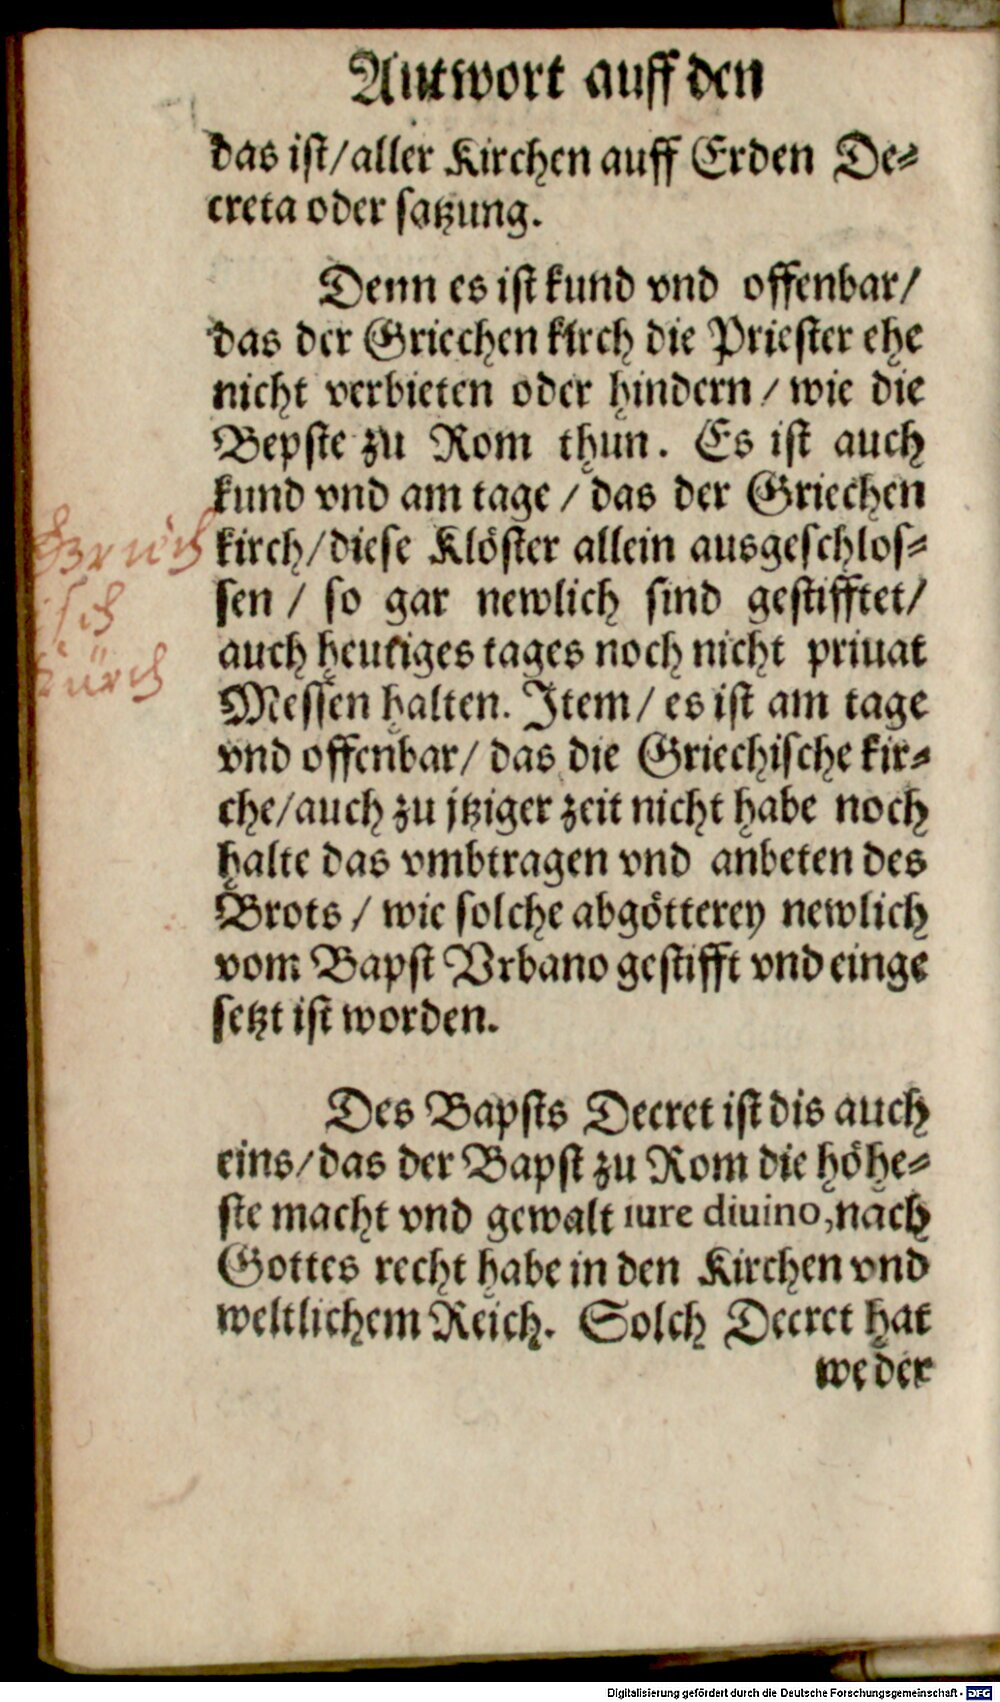 Antwort auff den
das ist/aller Kirchen auff Erden De⸗
creta oder satzung.
Denn es ist kund vnd offenbar/
das der Griechen kirch die Priester ehe
nicht verbieten oder hindern/ wie die
Bepste zu Rom thun. Es ist auch
kund vnd am tage/ das der Griechen
kirch/diese Klöster allein ausgeschlos⸗
sen/ so gar newlich sind gestifftet/
auch heutiges tages noch nicht priuat
Messen halten. Item/ es ist am tage
vnd offenbar/ das die Griechische kir⸗
che/auch zu jtziger zeit nicht habe noch
halte das vmbtragen vnd anbeten des
Brots/ wie solche abgötterey newlich
vom Bapst Vrbano gestifft vnd einge
setzt ist worden.
Des Bapsts Decret ist dis auch
eins/das der Bapst zu Rom die höhe⸗
ste macht vnd gewalt iure diuino, nach
Gottes recht habe in den Kirchen vnd
weltlichem Reich. Solch Decret hat
weder
Digitalisierung gefördert durch die Deutsche Forschungsgemeinschaft - DFG